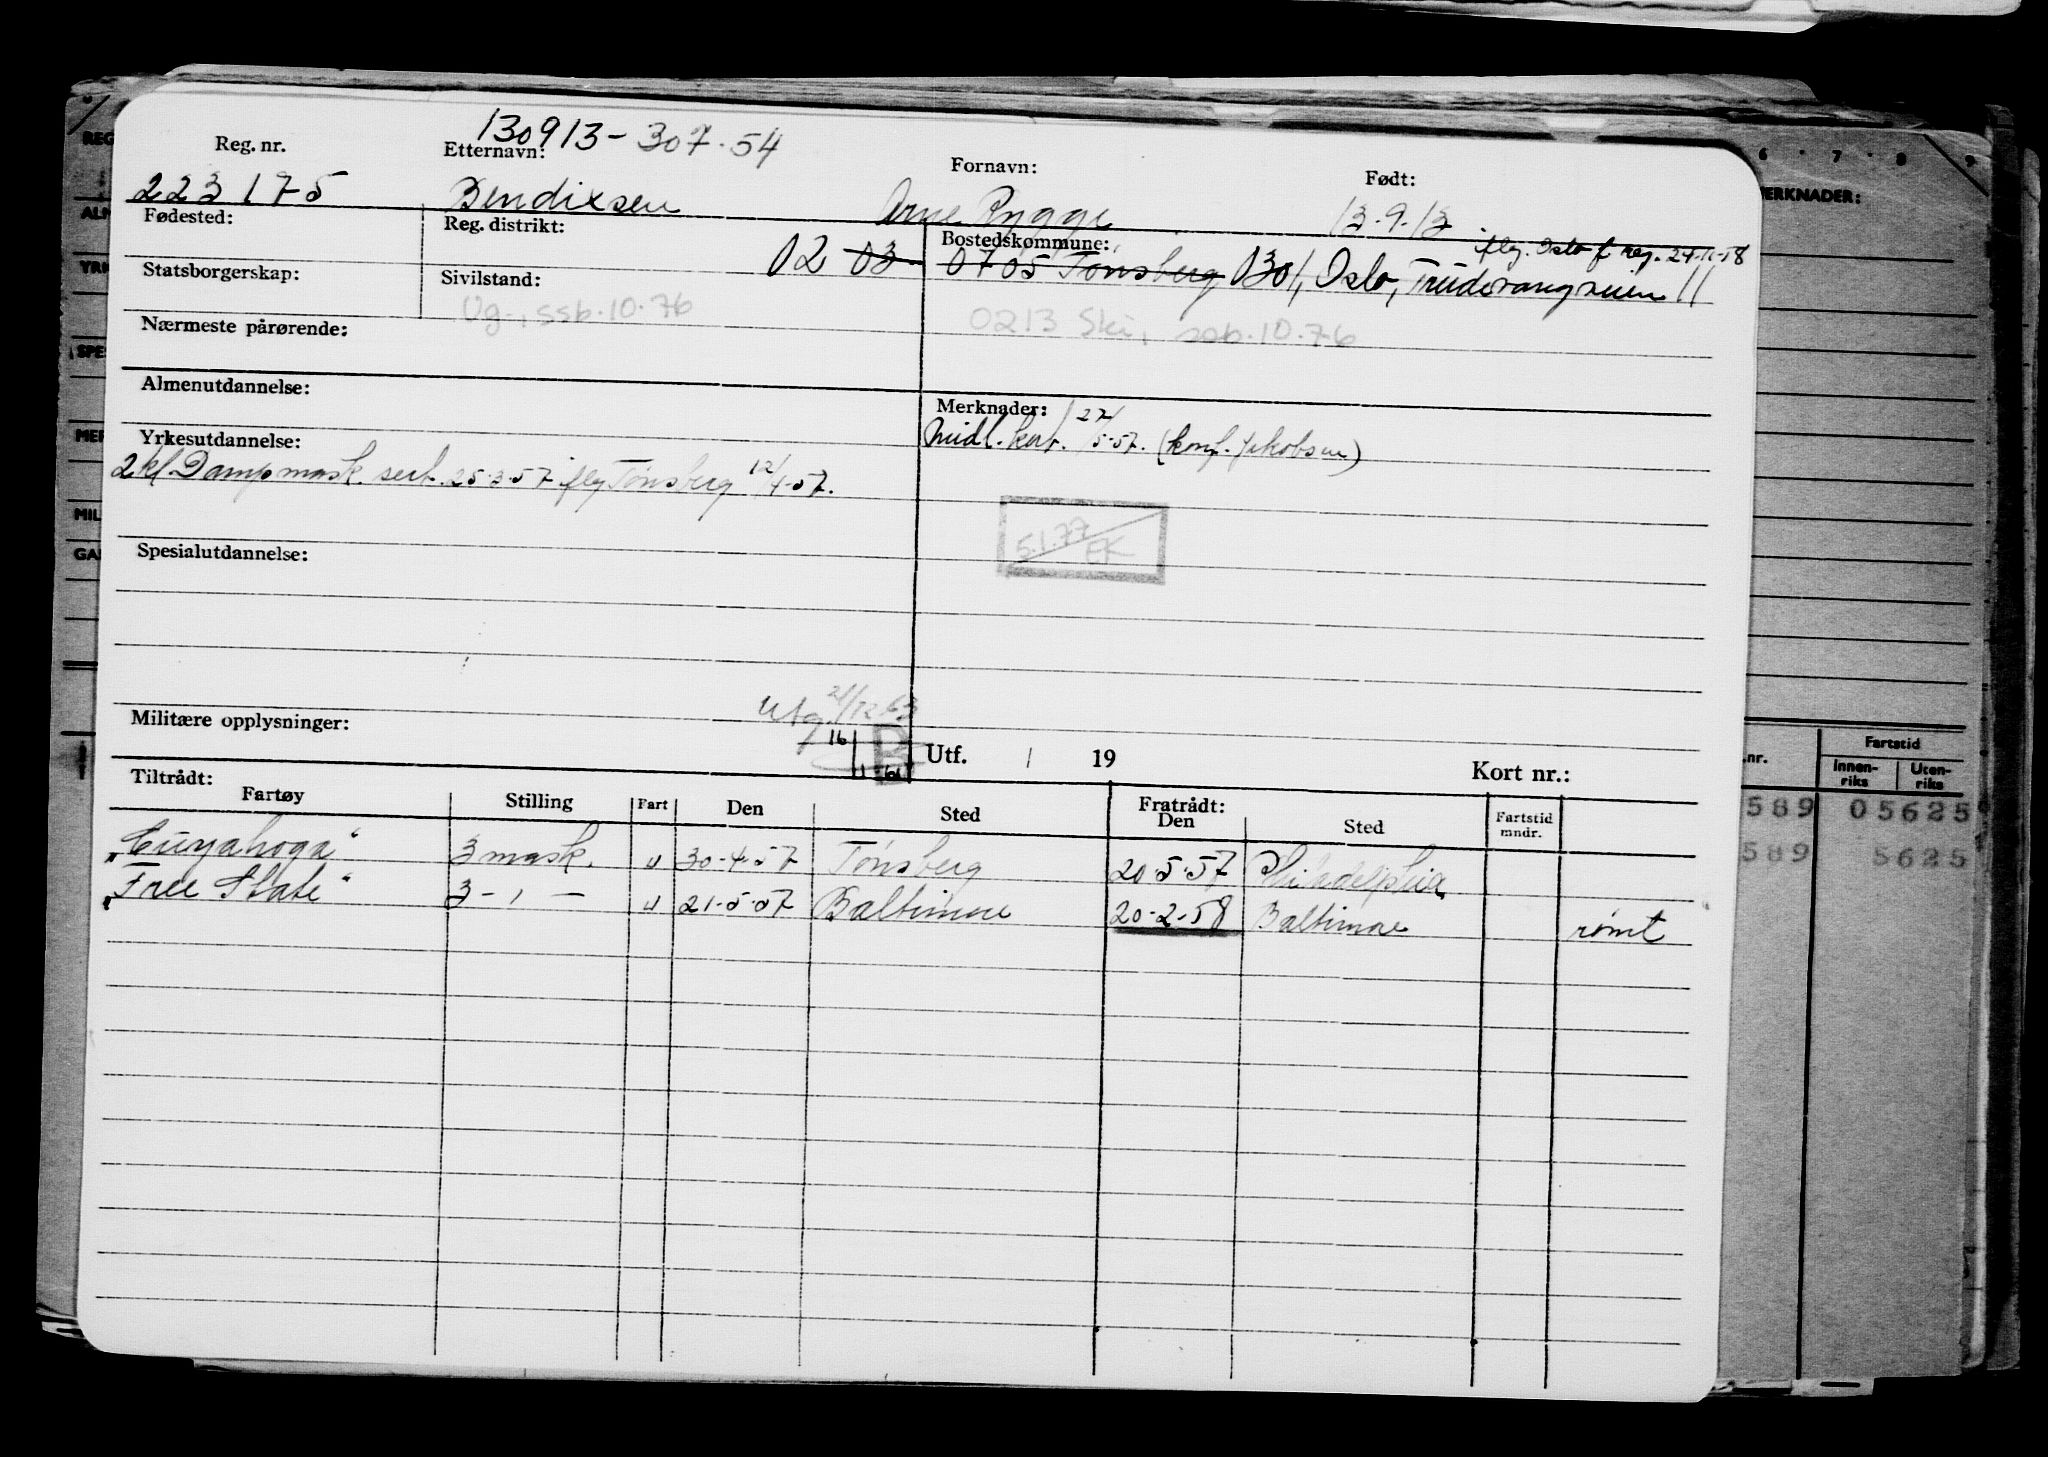 130913-307.54
Reg. nr. Etternavn: Fornavn: Født:
223175 Bendixsen Arne Rygge 13.9.13
Fødested: Reg. distrikt: 02 03 Bostedskommune: flg. Oslo f reg. 24-11-58
0705 Tønsberg 0301, Oslo, Trudvangveien 11
Statsborgerskap: Sivilstand:
Ug., ssb.10.76 0213 Ski, ssb.10.76
Nærmeste pårørende:
Almenutdannelse: Merknader:
Midl. kort. 27/5-57. (konf. Jakobsen)
Yrkesutdannelse:
2kl. Dampmask. sert. 25.3.57 flg Tønsberg 12/4-57.
5.1.77 EK
Spesialutdannelse:
Utg. 21/12 63
Militære opplysninger:
16 1-61 Utf. / 19 Kort nr.:
Tiltrådt: Fratrådt:
Fartøy Stilling Fart Den Sted Den Sted Fartstid mndr.
„Cuyahoga" 3 mask. u 30-4-57 Tønsberg 20-5-57 Philadelphia
„Free State" 3 - " - u 21-5-57 Baltimore 20-2-58 Baltimore rømt
6 7 8 9
MERKNADER:
.nr. Fartstid
Innen-riks Uten-riks
589 05625
589 5625